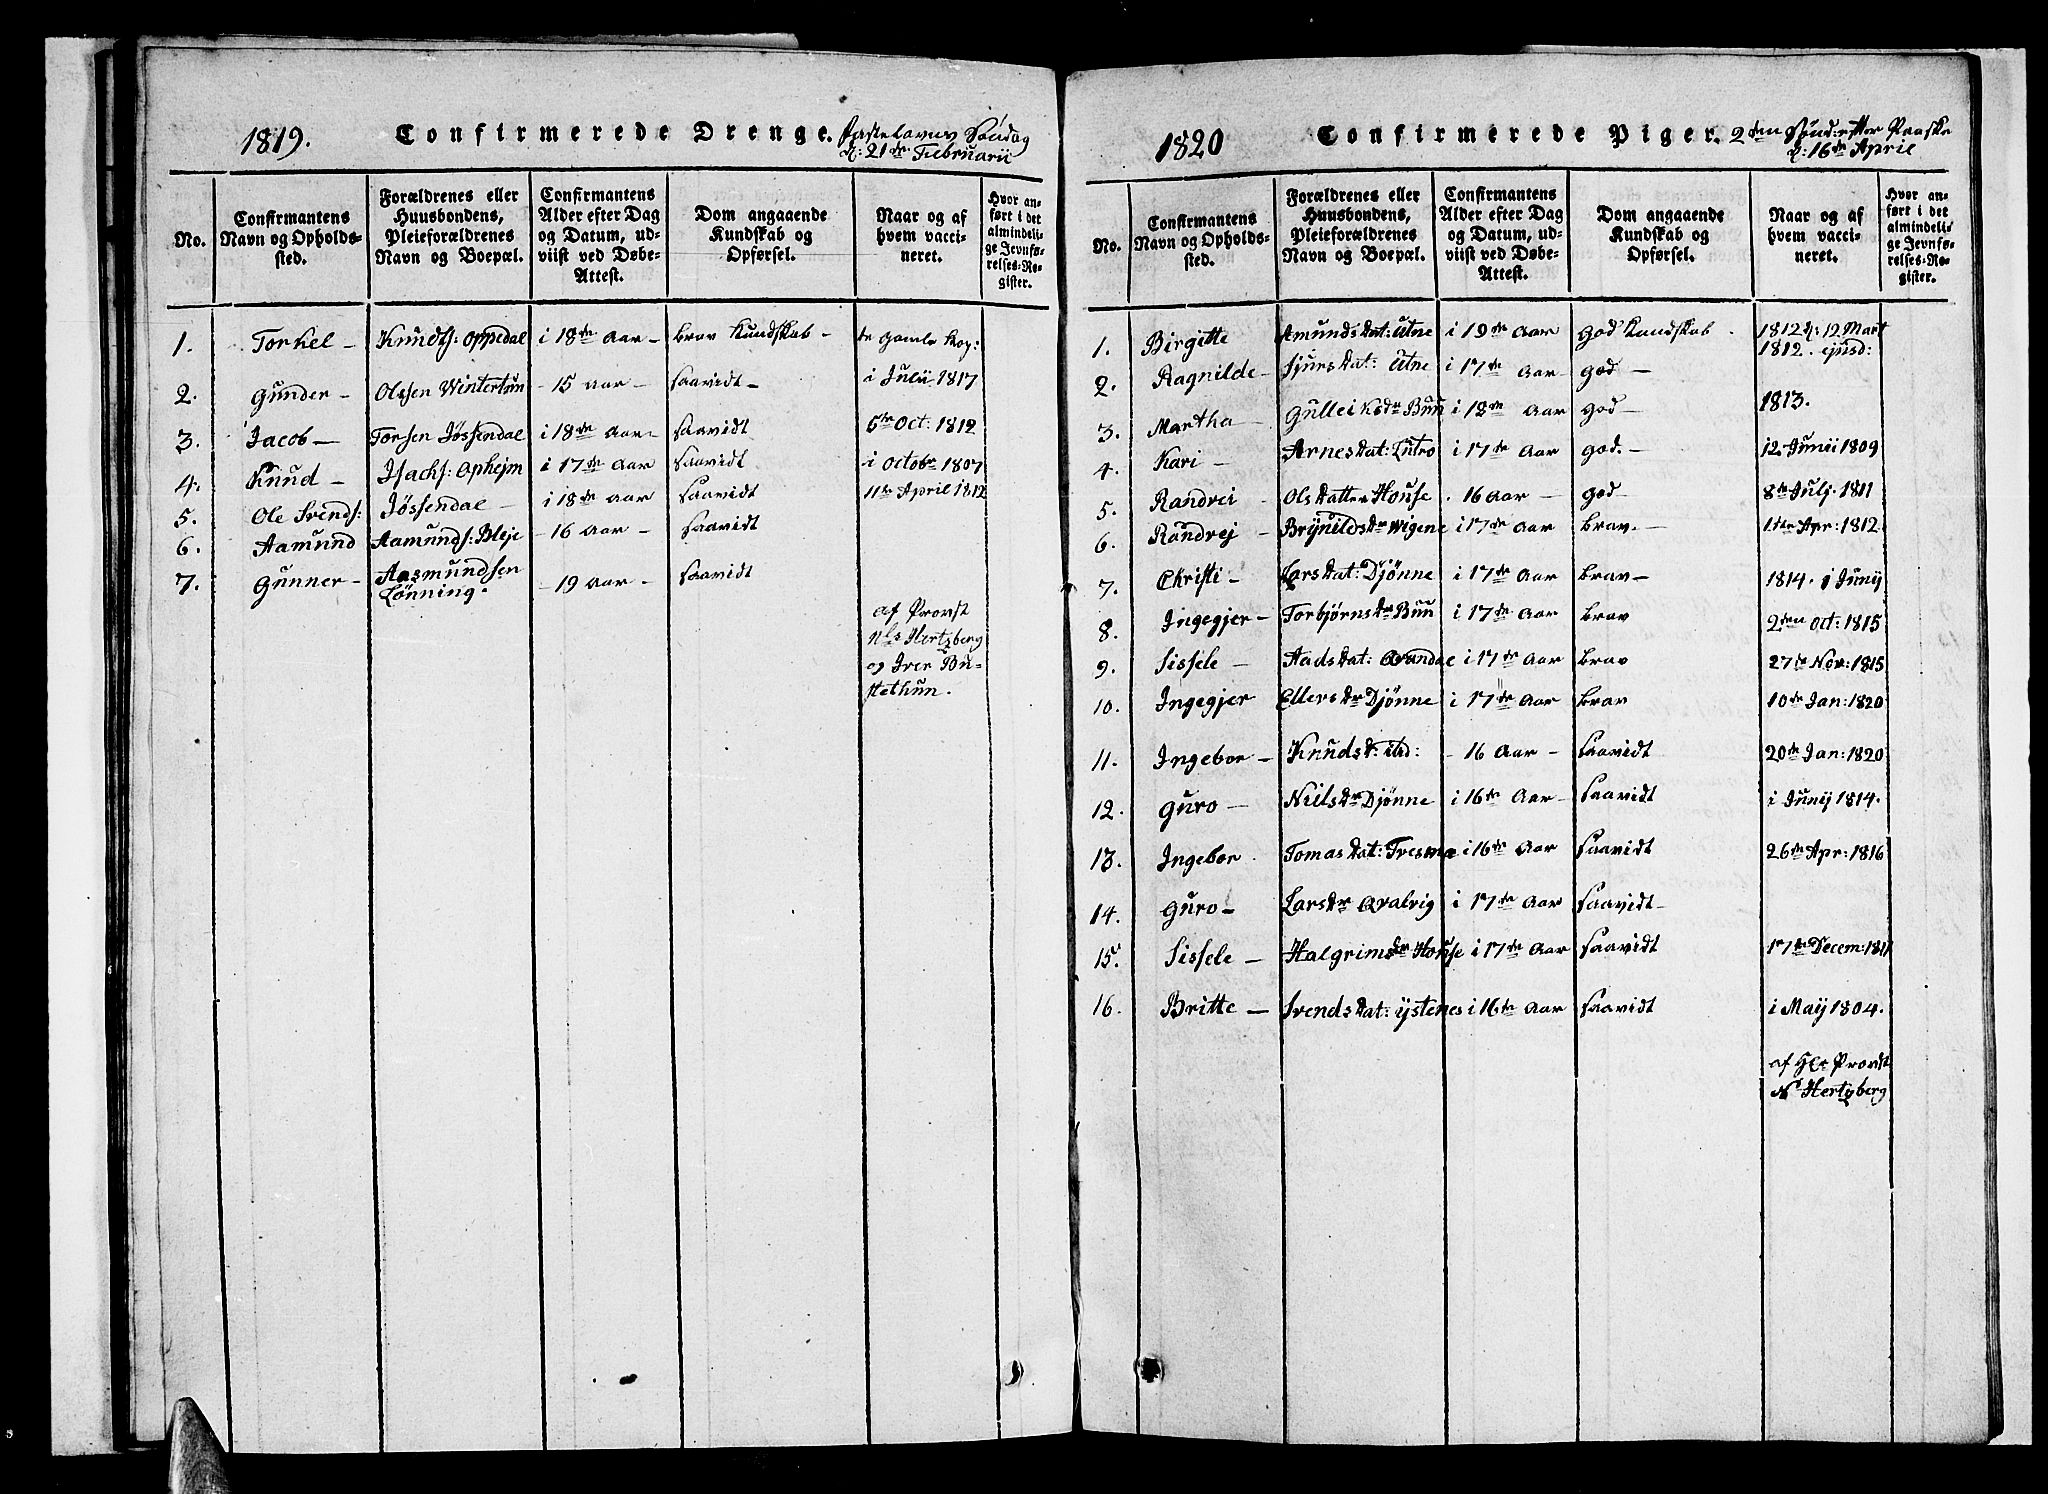 1819. Confirmerede Drenge. Fastelavns Søndag
d: 21de Februarii
No.
Confirmantens
Navn og Opholds-
sted.
Forældrenes eller
Huusbondens,
Pleieforældrenes
Navn og Boepæl.
Confirmantens
Alder efter Dag
og Datum, ud-
viist ved Døbe-
Attest.
Dom angaaende
Kundskab og
Opførsel.
Naar og af
hvem vacci-
neret.
Hvor an-
ført i det
almindeli-
ge Jevnfø-
relses-Re-
gister.
1. Torkel – Knudts: Oppedal i 18de Aar – brav Kundskab – de gamle Kop:
2. Gunder – Olssen Wintertun – 15 Aar – saavidt – i Julii 1817
3. Jacob – Torsen Jøssendal i 18de Aar – saavidt 6te Oct: 1812
4. Knud – Isachs: Ophejm i 17de Aar saavidt i Octobr 1807
5. Ole Svends: Jøssendal – i 18de Aar saavidt 11te April 1812
6. Aamund Aamunds: Bleje – 16 Aar – saavidt
7. Gunner – Aasmundsen – 19 Aar – saavidt
Lønning.
af Provst
Nls Hertzberg
og Iver Bu-
stethun.
1820 Confirmerede Piger. 2den Sønd: efter Paaske
d: 16de April
No.
Confirmantens
Navn og Opholds-
sted.
Forældrenes eller
Huusbondens,
Pleieforældrenes
Navn og Boepæl.
Confirmantens
Alder efter Dag
og Datum, ud-
viist ved Døbe-
Attest.
Dom angaaende
Kundskab og
Opførsel.
Naar og af
hvem vacci-
neret.
Hvor an-
ført i det
almindeli-
ge Jevnfø-
relses-Re-
gister.
1. Birgitte Amundsdat: Utne i 19de Aar god Kundskab. 1812 d: 12 Mart
2. Ragnilde – Sjursdat: Utne i 17de Aar god – 1812. ejusd:
3. Martha – Gulleiksdr Buu i 18de Aar god – 1813.
4. Kari – Arnesdat: Lutro i 17de Aar god. – 12 Junii 1809
5. Randvei – Olsdatter House . 16 Aar – god 8de Julj. 1811
6. Randvej – Brynildsdr Wigene i 17de Aar brav. – 11te Apr: 1812.
7. Christi – Larsdat: Djønne i 17de Aar brav – 1814. i Junij
8. Ingegjer – Torbjørnsdr Buu i 17de Aar brav 2den Oct: 1815
9. Sissele – Aadsdat: i 17de Aar brav 27de Nov: 1815
10. Ingegjer Ellersdr Djønne i 17de Aar brav 10de Jan: 1820
11. Ingebor – Knudsd: ibd: – 16 Aar – saavidt 20de Jan: 1820
12. Guro – Nielsdr Djønne i 16de Aar – saavidt i Junij 1814.
13. Ingebor Tomasdat: i 16de Aar saavidt 26de Apr: 1816
14. Guro – Larsdr i 17de Aar saavidt –
15. Sissele – Halgrimsdr House i 17de Aar saavidt 17de Decem: 1811
16. Britte – Svendsdat: Ystenes i 16de Aar saavidt i Maij 1804.
af Hr Provst
Ns Hertzberg